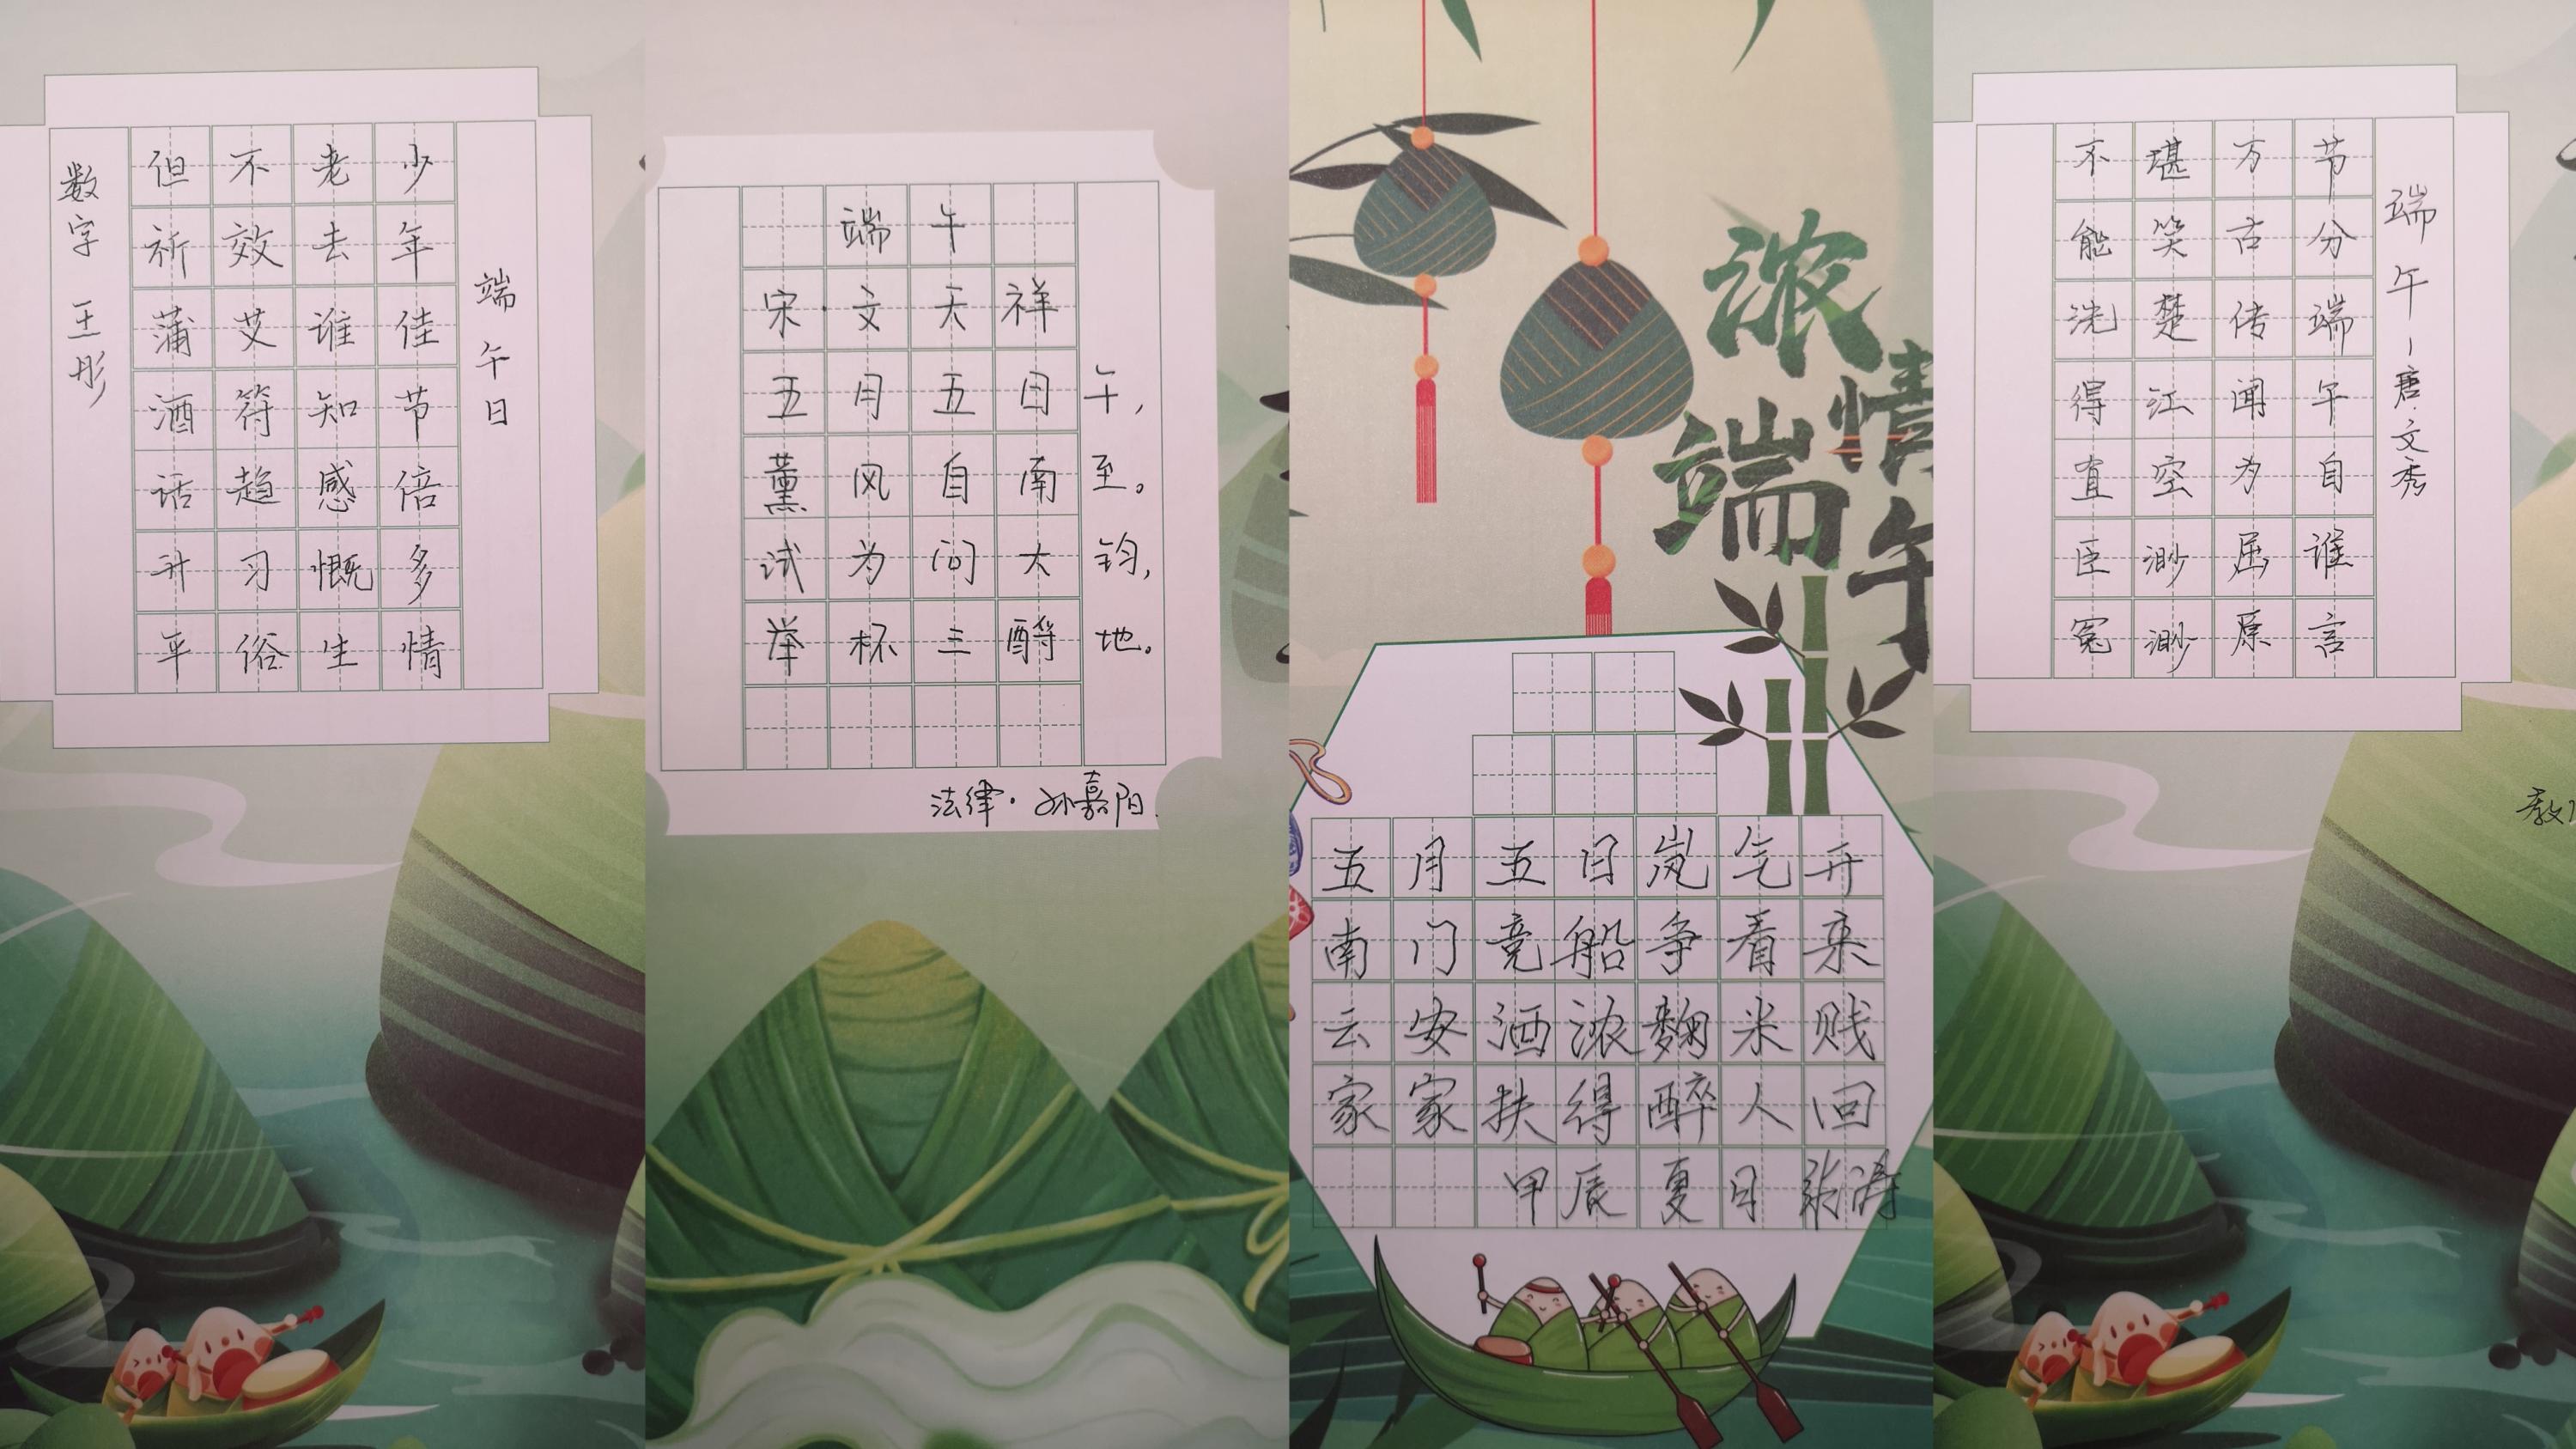 端午日
少年佳节倍多情
老去谁知感慨生
不效艾符趋习俗
但祈蒲酒话升平
数字 王彤
端午
宋·文天祥
五月五日午，
薰风自南至。
试为问大钧，
举杯三酹地。
法律·孙嘉阳
浓情
端午
五月五日岚气开
南门竞船争看来
云安酒浓麴米贱
家家扶得醉人回
甲辰夏月 张涛
端午-唐·文秀
节分端午自谁言
万古传闻为屈原
堪笑楚江空渺渺
不能洗得直臣冤